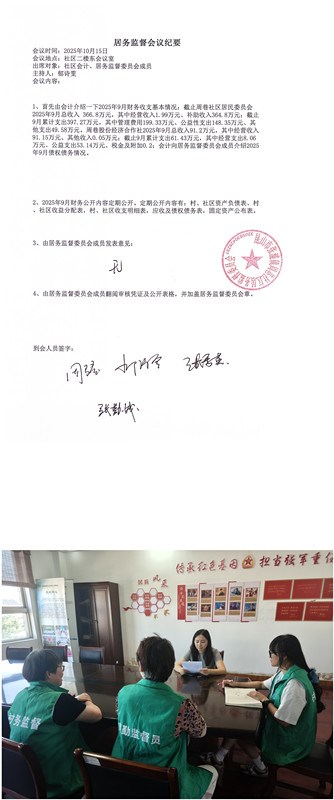 居务监督会议纪要
会议时间：2025年10月15日
会议地点：社区二楼东会议室
出席对象：社区会计、居务监督委员会成员
主持人：郁诗雯
会议内容：
1、首先由会计介绍一下2025年9月财务收支基本情况：截止周巷社区居民委员会
2025年9月总收入 366.8万元，其中经营收入1.99万元、补助收入364.8万元；截
止9月累计支出397.27万元，其中管理费用199.33万元、公益性支出148.35万元、其
他支出49.58万元。周巷股份经济合作社2025年9月总收入91.2万元，其中经营收入
91.15万元、其他收入0.05万元；截止9月累计支出61.43万元，其中经营支出8.06
万元、公益支出53.14万元、税金及附加0.2；会计向居务监督委员会成员介绍2025
年9月债权债务情况。
2、2025年9月财务公开内容定期公开。定期公开内容有：村、社区资产负债表、村
、社区收益分配表、村、社区收支明细表，应收及债权债务表、固定资产公布表。
3、由居务监督委员会成员发表意见：
无
4、由居务监督委员会成员翻阅审核凭证及公开表格，并加盖居务监督委员会章。
到会人员签字：
传承红色基因 担当强军重任
村务监督
勤监督员